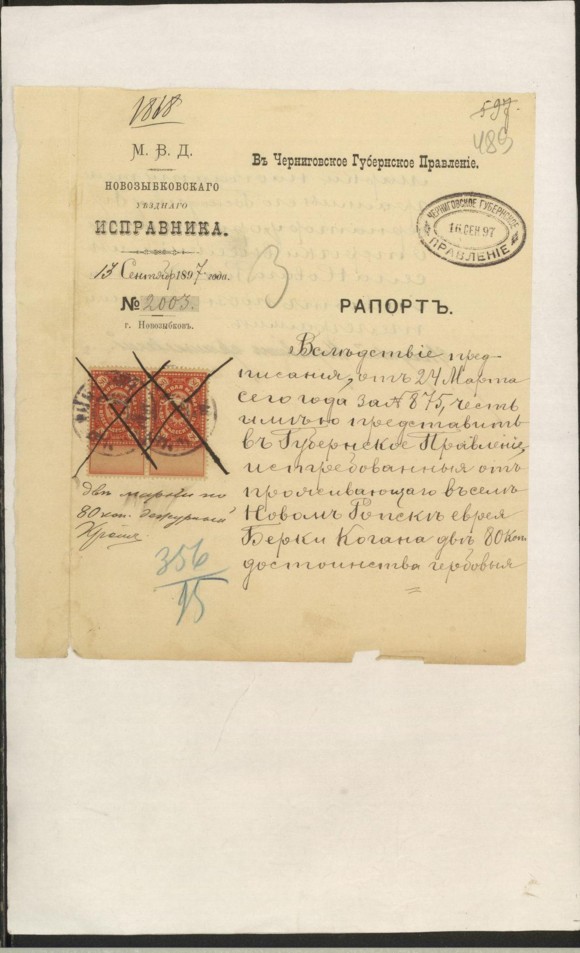 1868
597.
489
М. В. Д.
НОВОЗЫБКОВСКАГО
УѢЗДНАГО
ИСПРАВНИКА.
13 Сентября 1897 года.
№ 2003.
г. Новозыбковъ.
Въ Черниговское Губернское Правленіе.
ЧЕРНИГОВСКОЕ ГУБЕРНСКОЕ
16 СЕН 97
ПРАВЛЕНІЕ
3
РАПОРТЪ.
Вслѣдствіе пред-
писанія, отъ 24 Марта
сего года за № 875, честь
имѣю представить
въ Губернское Правленіе,
истребованныя отъ
проживающаго въ селѣ
Новомъ Ропскѣ еврея
Берки Когана двѣ 80 коп.
достоинства гербовыя
двѣ марки по
80 коп. дежурный
356
15